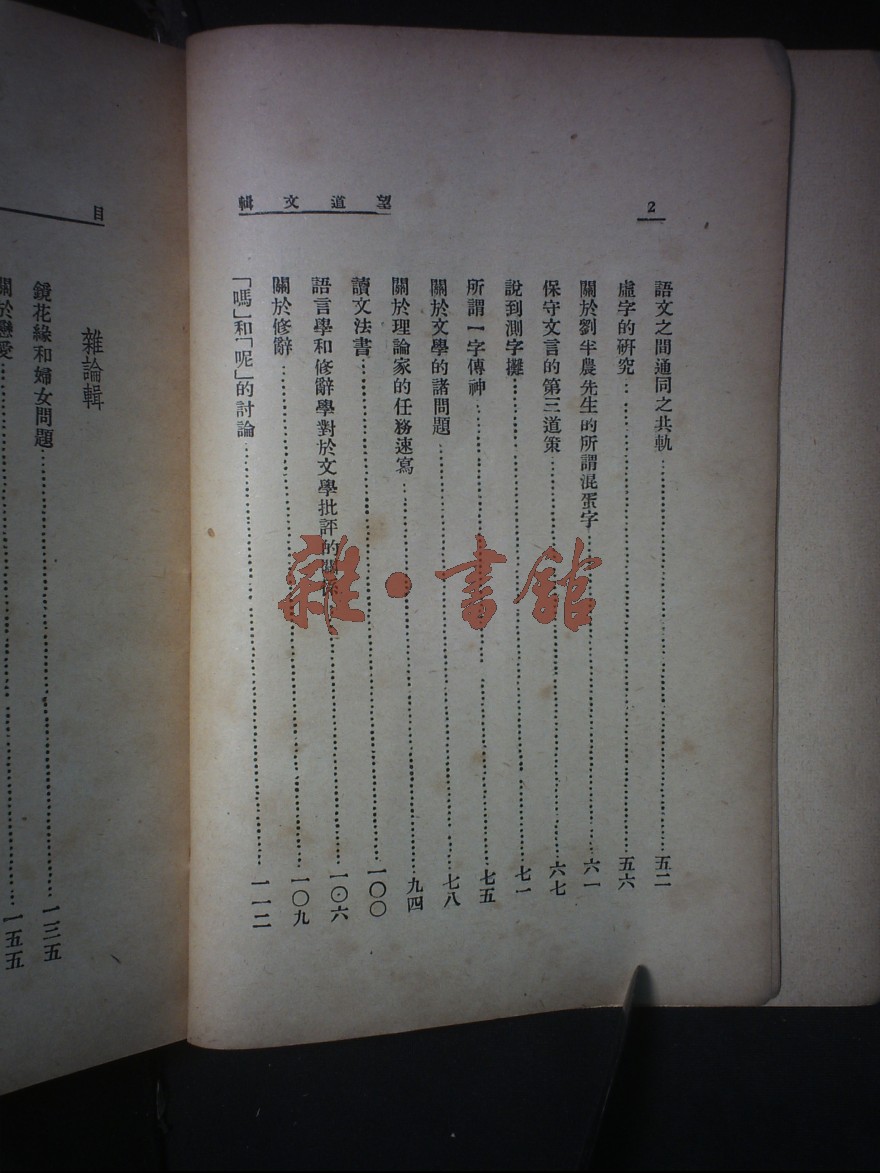 2
望道文輯
語文之間通同之共軌……五二
虛字的研究……五六
關於劉半農先生的所謂混蛋字……六一
保守文言的第三道策……六七
說到測字攤……七一
所謂一字傳神……七五
關於文學的諸問題……七八
關於理論家的任務速寫……九四
讀文法書……一〇〇
語言學和修辭學對於文學批評的關係……一〇六
關於修辭……一〇九
「嗎」和「呢」的討論……一一二
目
雜論輯
鏡花緣和婦女問題……一三五
關於戀愛……一五五
雜·書館